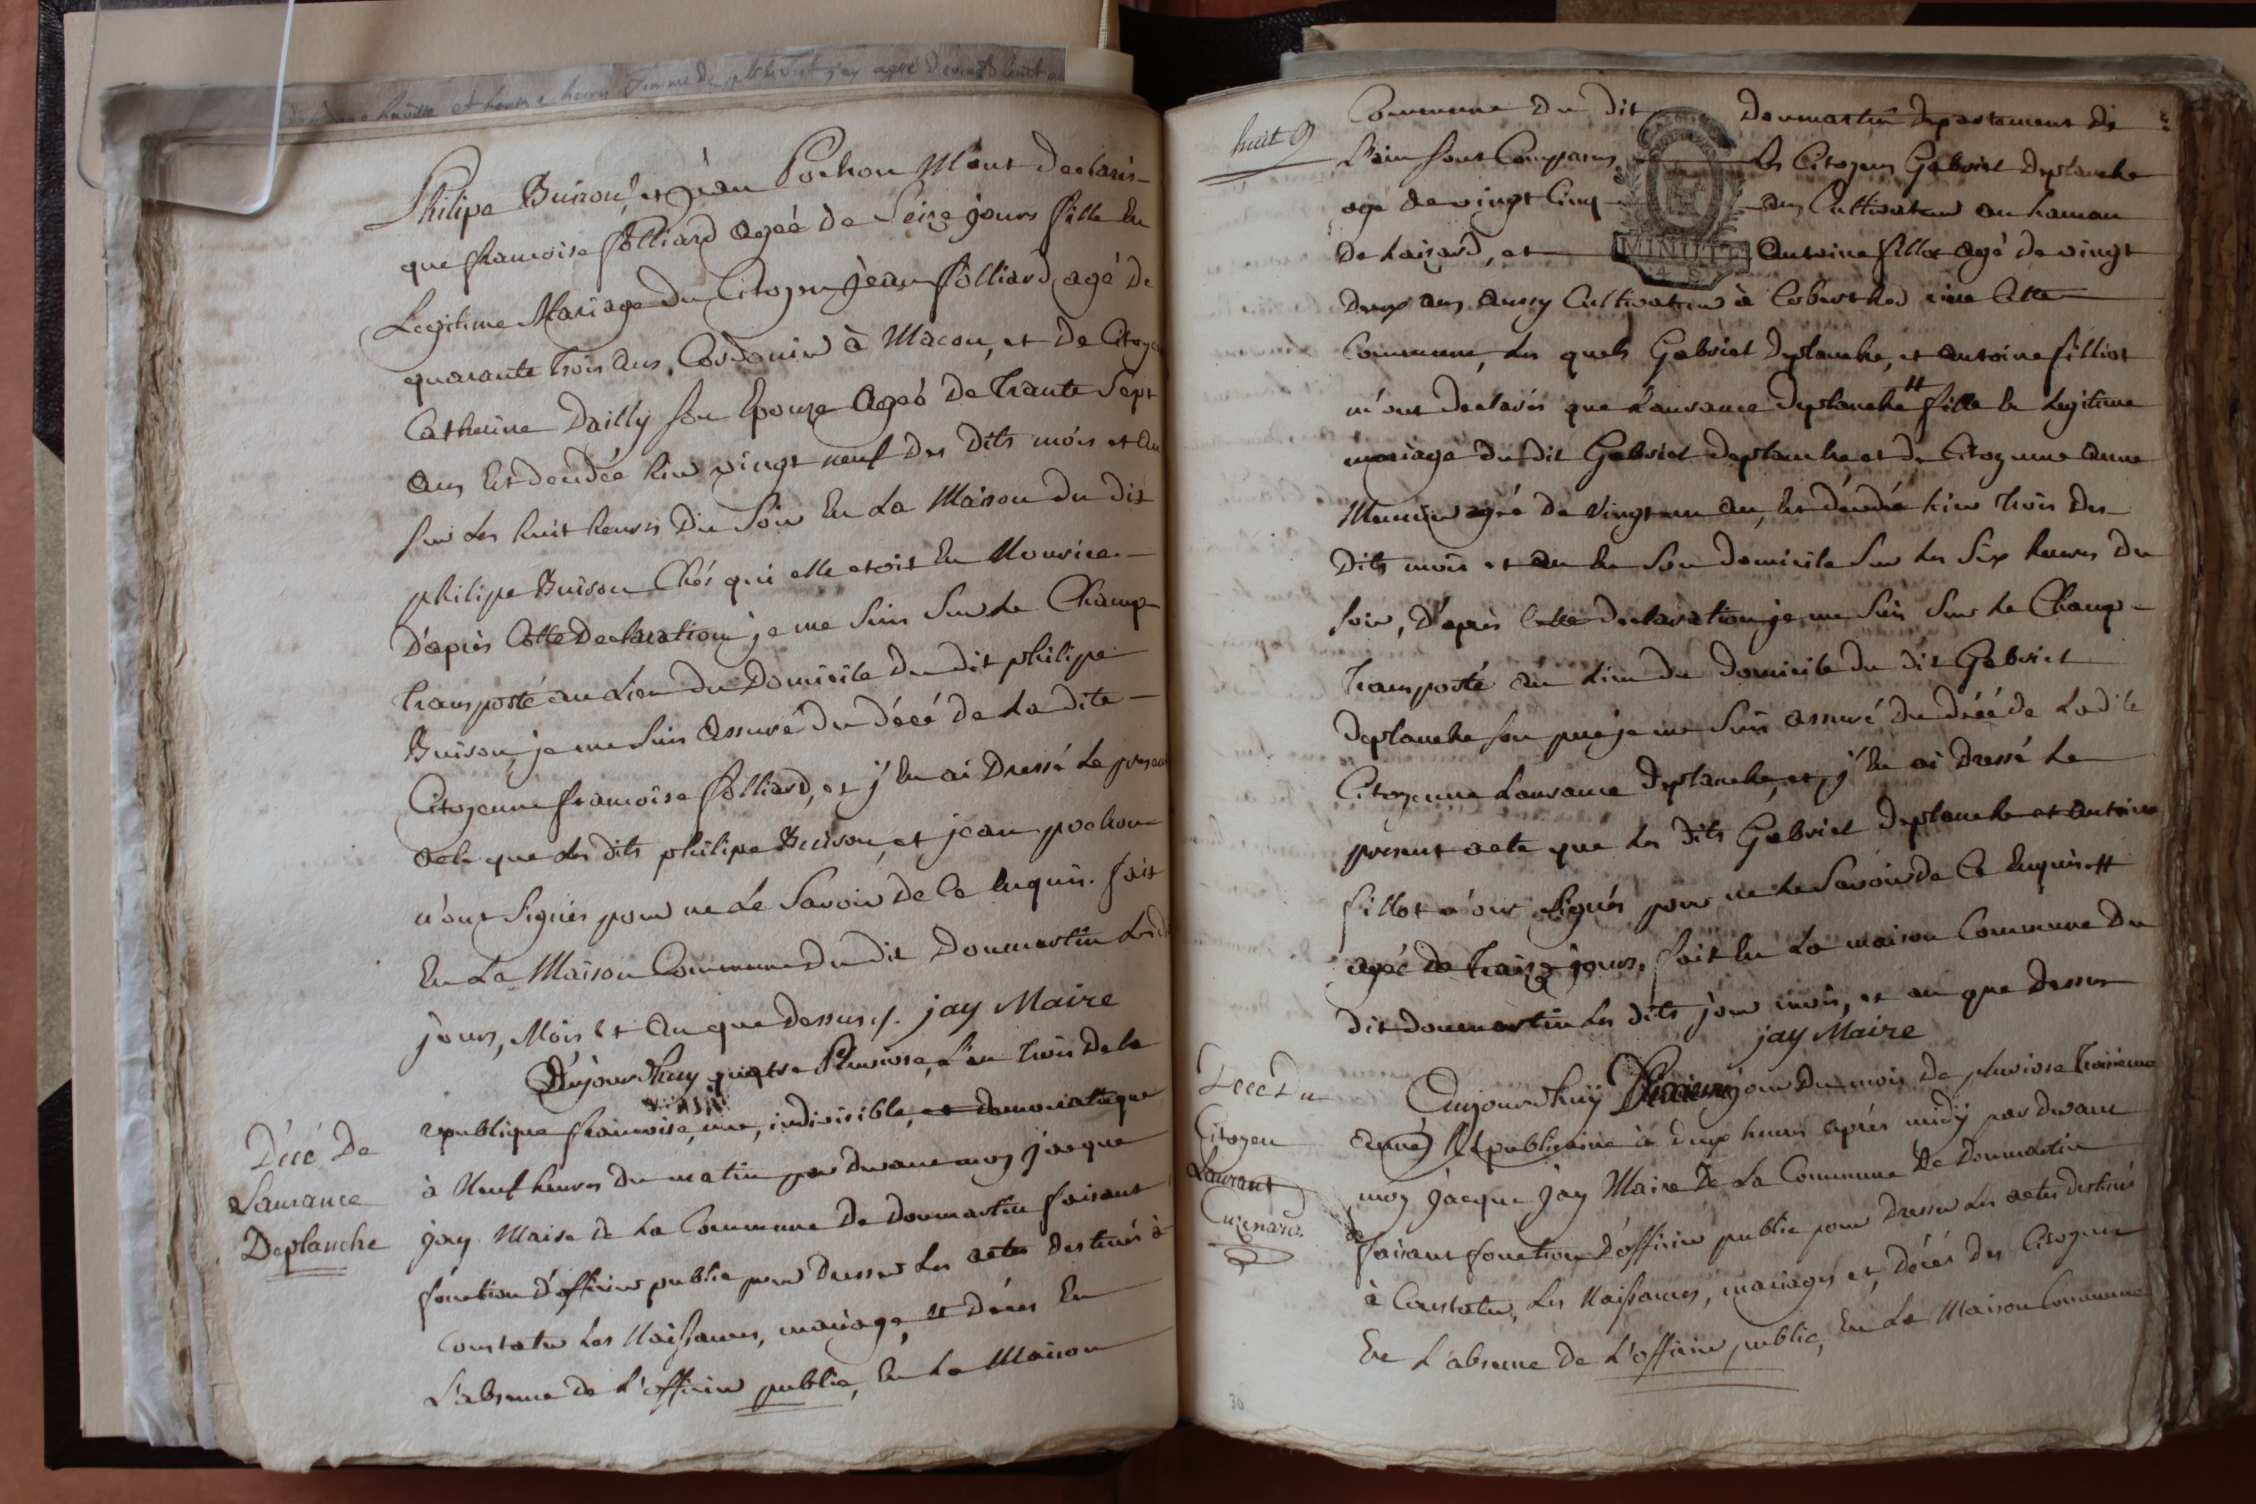 Philipe Buison, et jean Pochon M'ont declarés
que francoise folliard ageé de Seize jours fille En
Legitime Mariage du Citoyen jean folliard, agé de
quarante trois ans, Cordonier à Macon, et de Citoyen
Catherine Dailly son Epouze ageé de Trante Sept
ans Est deudée hier vingt neuf des dits mois et an
sur les huit heures du Soir En La Maison du dit
philipe Buison Chés qui elle etoit En Nourice.
D'apres Cette Declaration je me suis Sur le Champ
transporté au Lieu du Domicile du dit philipe
Buison, je me suis assuré du décé de La dite
Citoyenne francoise folliard, et j'En ai Dressé Le present
acte que les dits philipe Buison, et jean pochon
n'ont Signés pour ne Le Savoir de Ce Enquis. fait
En La Maison Commune du dit Donmartin Les d
jours, Mois Et an que dessus /. jay Maire
Décé De
Laurance
Deplanche
Aujourd'huy quatre Pluviose, L'an trois de la
republique francoise, une, indivisible, et democratique
à Neuf heures du matin par devant moy jacque
jay Maire de La Commune De donmartin faisant
fonction d'officier public pour Dresser Les actes destinés à
Constater Les Naissances, mariages, et décés En
L'absence de L'officier public, En La Maison
huit 9
Commune du dit Donmartin departement de
L'ain sont Comparus Les Citoyens Gabriel Deplanche
agé de vingt Cinq ans Cultivateur au hameau
de Laizard, et Antoine fillot agé de vingt
MINUTE
deux ans aussy Cultivateur à Cette
Commune, Les quels Gabriel deplanche, et antoine filliot
m'ont declarés que Laurance deplanche # fille En Legitime
mariage du dit Gabriel deplanche et de Citoyenne anne
Munier ageé de vingt un an, Est déudée hier trois des
dits mois et an En Son domicile Sur les Six heures du
soir, D'apres Cette declaration je me suis Sur Le Champ
transporté au Lieu du domicile du dit Gabriel
deplanche son pere je me suis assuré du décé de Ladite
Citoyenne Laurance Deplanche, et j'En ai dressé Le
present acte que Les dits Gabriel deplanche et antoine
fillot n'ont Signés pour ne Le Savoir de Ce Enquis #
ageé de traize jours, fait En La maison Commune du
dit donmartin Les dits jour mois, et an que dessus
jay Maire
Décé Du
Citoyen
Laurant
Guienard
Aujourd'huy jour du mois de pluviose troisieme
année Republicaine à deux heures après midy par devant
moy jacque jay Maire De La Commune De donmartin
faisant fonction d'officier public pour dresser Les actes destinés
à Constater, Les Naissances, mariages et, décés des Citoyens
En L'absence de L'officier public, En La Maison Commune
30